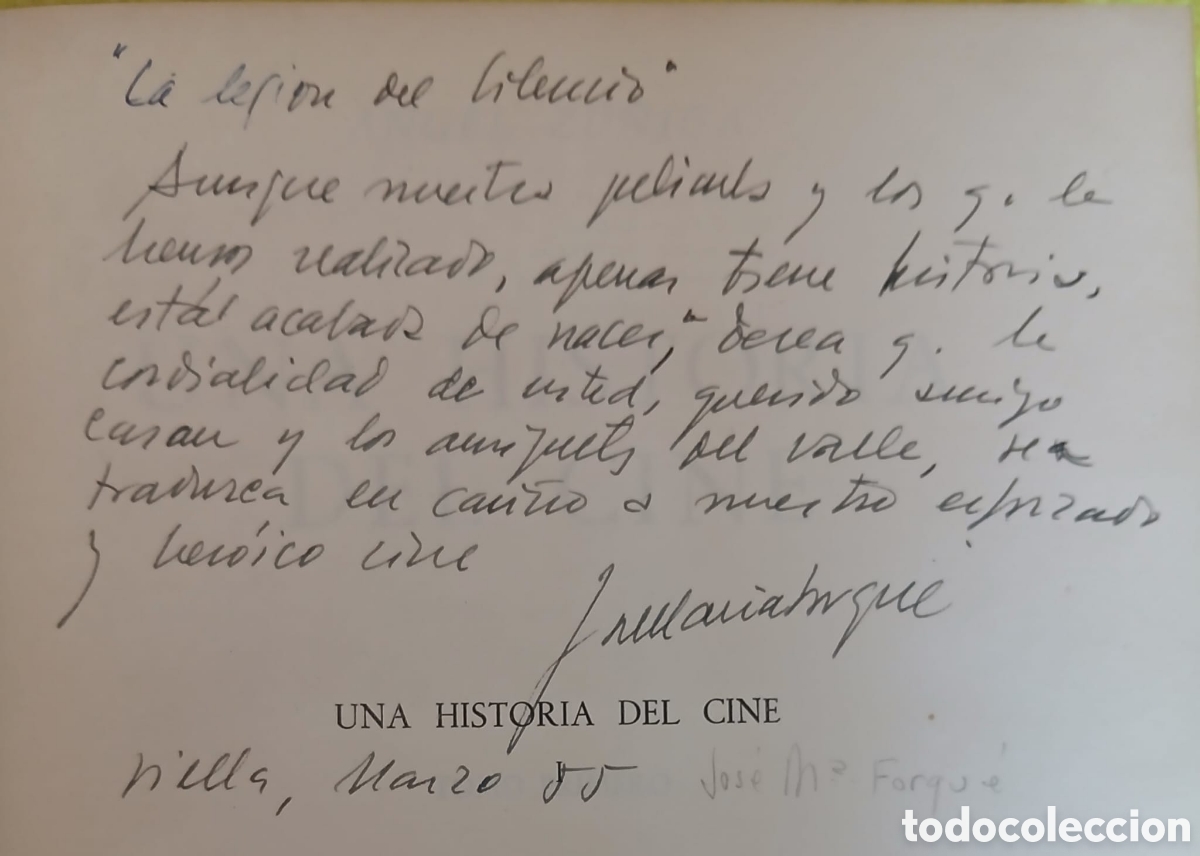 "La legion del Silencio"
Aunque nuestra película y los q. la
hemos realizado, apenas tiene historia,
está acabada de nacer, desea q. la
cordialidad de usted, querido amigo
Casau y los amiguets del valle, se
traduzca en cariño a nuestro esforzado
y heróico cine
José María Forqué
UNA HISTORIA DEL CINE
Viella, Marzo 55
José Mª Forqué
todocoleccion